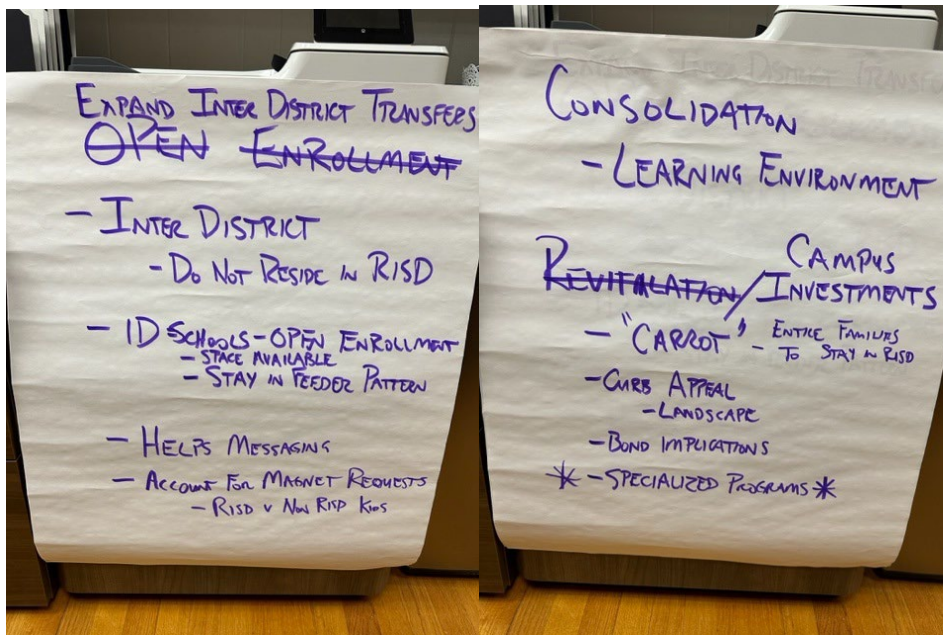 EXPAND INTER DISTRICT TRANSFERS
OPEN ENROLLMENT
- INTER DISTRICT
- DO NOT RESIDE IN RISD
- ID SCHOOLS - OPEN ENROLLMENT
- SPACE AVAILABLE
- STAY IN FEEDER PATTERN
- HELPS MESSAGING
- ACCOUNT FOR MAGNET REQUESTS
- RISD v NON RISD KIDS
CONSOLIDATION
- LEARNING ENVIRONMENT
REVITALATION / CAMPUS INVESTMENTS
- "CARROT" - ENTICE FAMILIES TO STAY IN RISD
- CURB APPEAL
- LANDSCAPE
- BOND IMPLICATIONS
* - SPECIALIZED PROGRAMS *